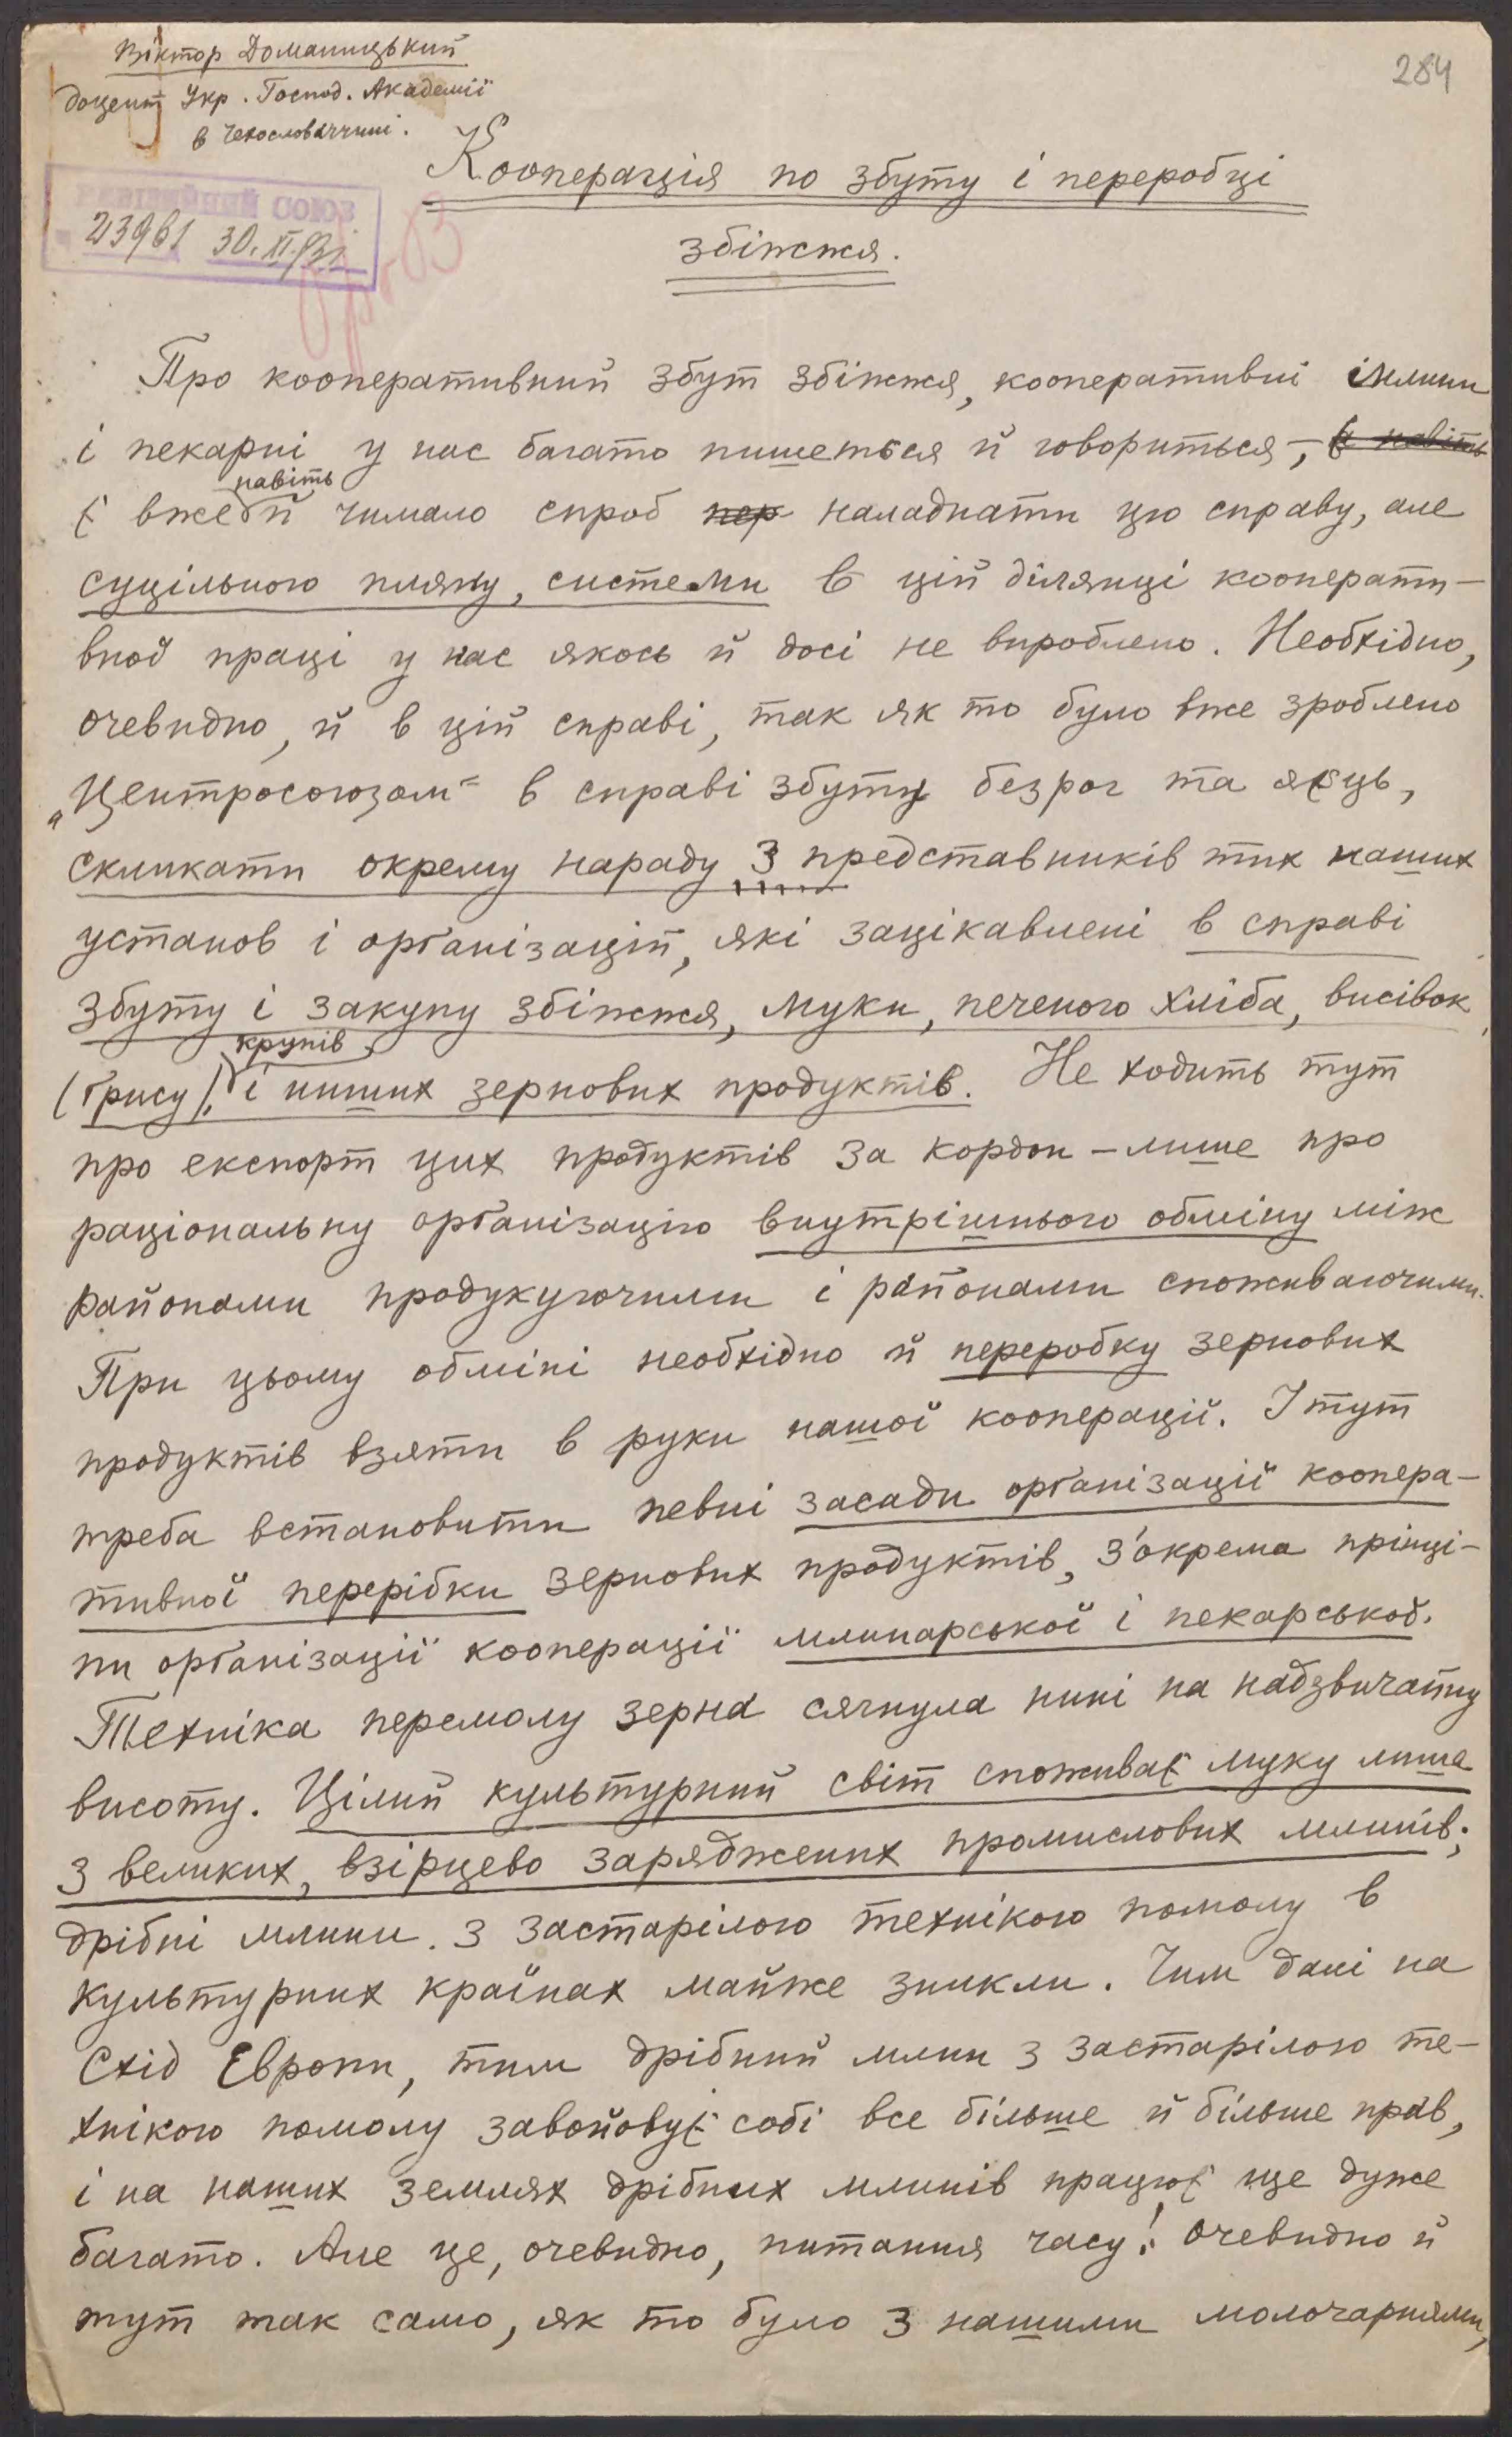 Віктор Доманицький
доцент Укр. Господ. Академії
в Чехословаччині.
284
Кооперація по збуту і переробці
збіжжя.
СОЮЗ
23961 30.XI.31
Про кооперативний збут збіжжя, кооперативні млини
і пекарні у нас багато пишеться й говориться, – є навіть
навіть
є вже й чимало спроб пер наладнати цю справу, але
суцільного пляну, системи в цій ділянці кооперати–
вної праці у нас якось й досі не вироблено. Необхідно,
очевидно, й в цій справі, так як то було вже зроблено
„Центросоюзом" в справі збуту безрог та яєць,
скликати окрему нараду з представників тих наших
установ і орґанізацій, які зацікавлені в справі
збуту і закупу збіжжя, муки, печеного хліба, висівок
крупів
(ґрису), і инших зернових продуктів. Не ходить тут
про експорт цих продуктів за кордон – лише про
раціональну орґанізацію внутрішнього обміну між
районами продукуючими і районами споживаючими.
При цьому обміні необхідно й переробку зернових
продуктів взяти в руки нашої кооперації. І тут
треба встановити певні засади орґанізації коопера–
тивної перерібки зернових продуктів, з'окрема прінці–
пи орґанізації кооперації млинарської і пекарської.
Техніка перемолу зерна сягнула нині на надзвичайну
висоту. Цілий культурний світ споживає муку лише
з великих, взірцево заряджених промислових млинів;
дрібні млини з застарілою технікою помолу в
культурних країнах майже зникли. Чим далі на
Схід Европи, тим дрібний млин з застарілою те–
хнікою помолу завойовує собі все більше й більше прав,
і на наших землях дрібних млинів працює ще дуже
багато. Але це, очевидно, питання часу! Очевидно й
тут так само, як то було з нашими молочарнями,